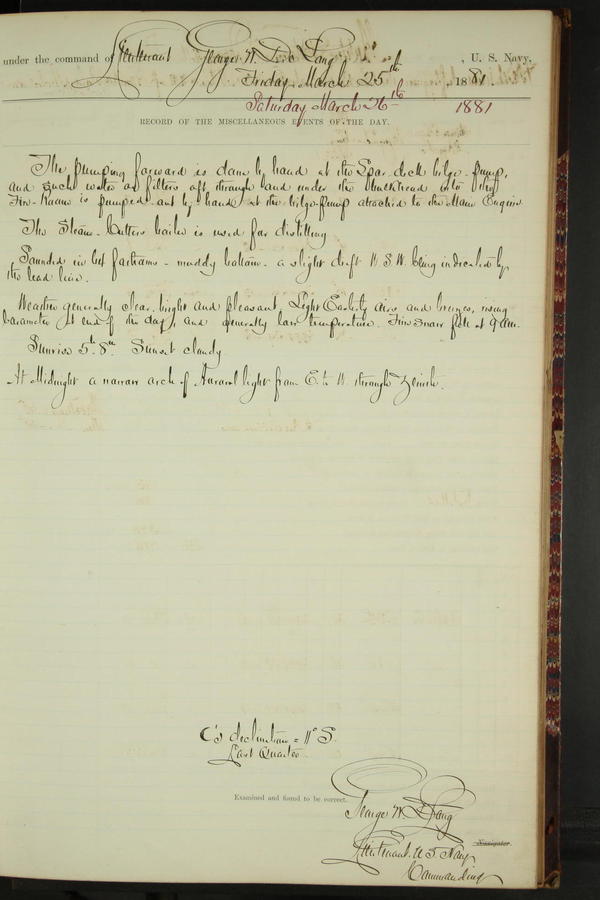 under the command of Lieutenant George W. De Long, U. S. Navy,
Friday March 25th, 1881.
Saturday March 26th 1881
RECORD OF THE MISCELLANEOUS EVENTS OF THE DAY.
The pumping forward is done by hand at the Spar-deck bilge-pump,
and such water as filters aft through and under the bulkhead into the
Fire-Room is pumped out by hand at the bilge-pump attached to the Main Engine
The Steam-Cutters boiler is used for distilling
Sounded in fathoms - muddy bottom - a slight drift W S W being indicated by
the lead line.
Weather generally clear, bright and pleasant. Light Easterly airs and breezes, rising
barometer at end of the day, and generally low temperature. Fine snow fell at 9 am.
Sunrise 5h 8m Sunset cloudy
At Midnight a narrow arch of Auroral light from E. to W. through Zenith.
C's declination = 11° S.
Last Quarter
Examined and found to be correct.
George W. De Long
Navigator.
Lieutenant U.S. Navy
Commanding